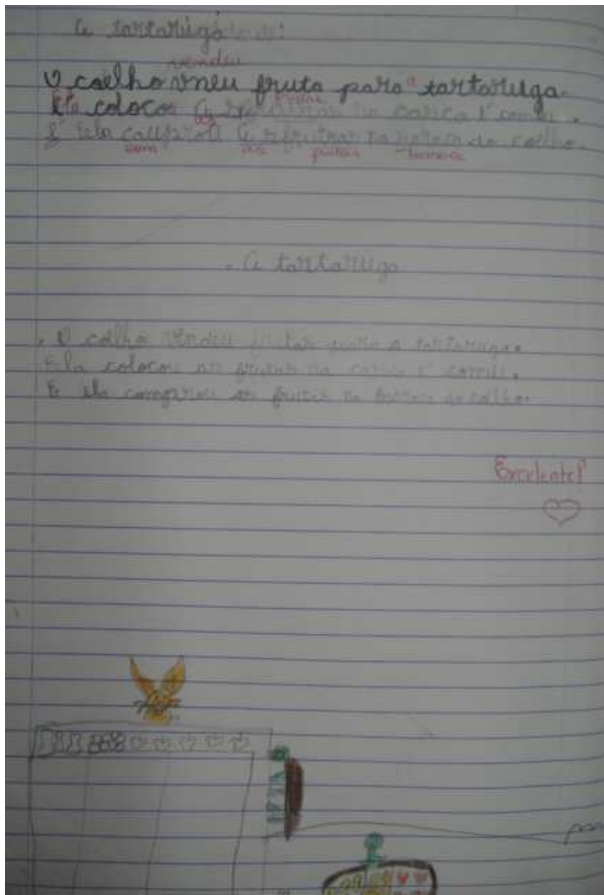 A tartaruga
vendeu
O coelho vneu fruta para a tartaruga.
Ela colocou as frutas na caroça i' comeu.
E Ela as frutas na do coelho.
com as frutas barraca
A tartaruga
O coelho vendeu frutas para a tartaruga.
Ela colocou as frutas na i' comeu.
E ela comprou as frutas na barraca do coelho.
Excelente!